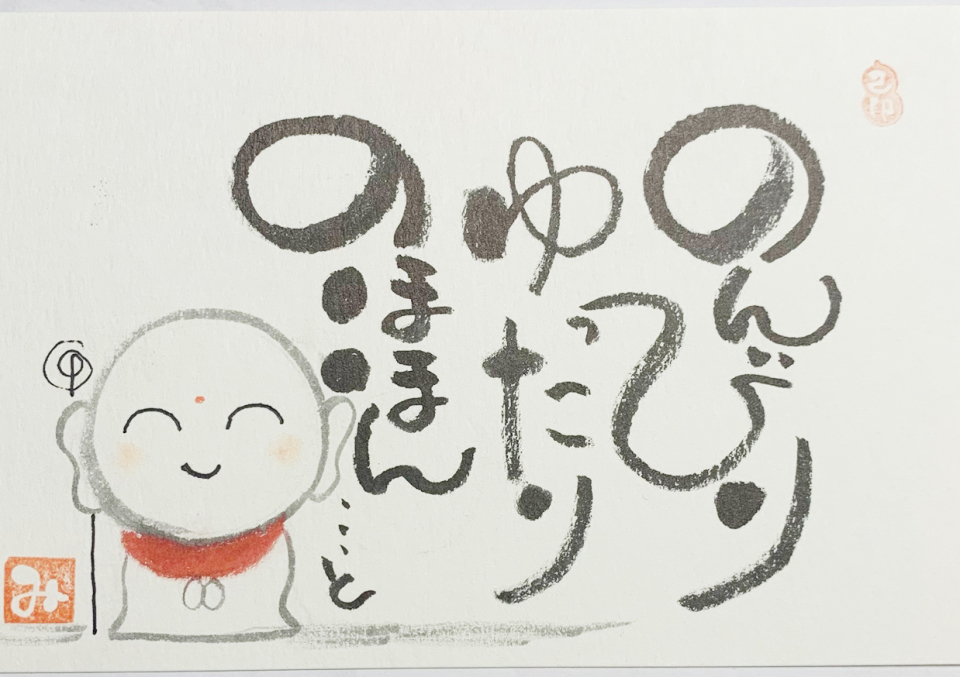 のんびり
ゆったり
のほほん
…と
み